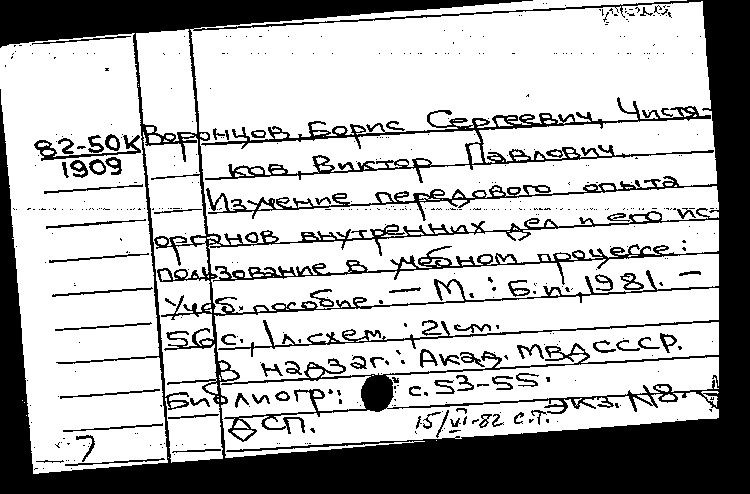 82-50К
1909
Воронцов, Борис Сергеевич, Чистя-
ков, Виктор Павлович.
Изучение передового опыта
органов внутренних дел и его ис-
пользование в учебном процессе:
Учеб. пособие. — М.: Б.и., 1981. —
56 с., 1 л. схем.; 21 см.
В надзаг.: Акад. МВД СССР.
Библиогр.: с. 53-55.
ДСП. 15/VI-82 С.Т. Экз. №8.
7